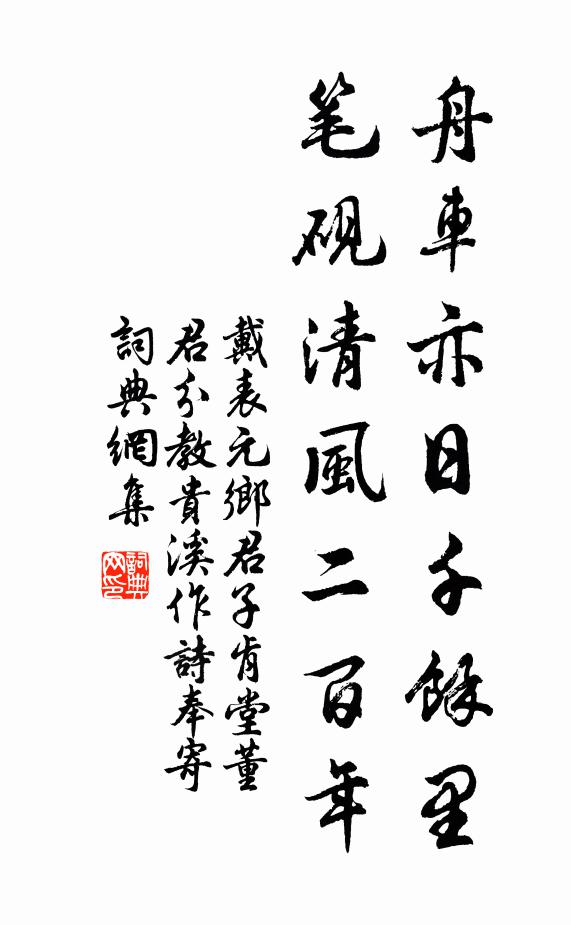 舟車亦日千餘里
笔硯清風二百年
戴表元鄉君子肯堂董
君分教貴溪作詩奉寄
詞典網集
詞典
网印